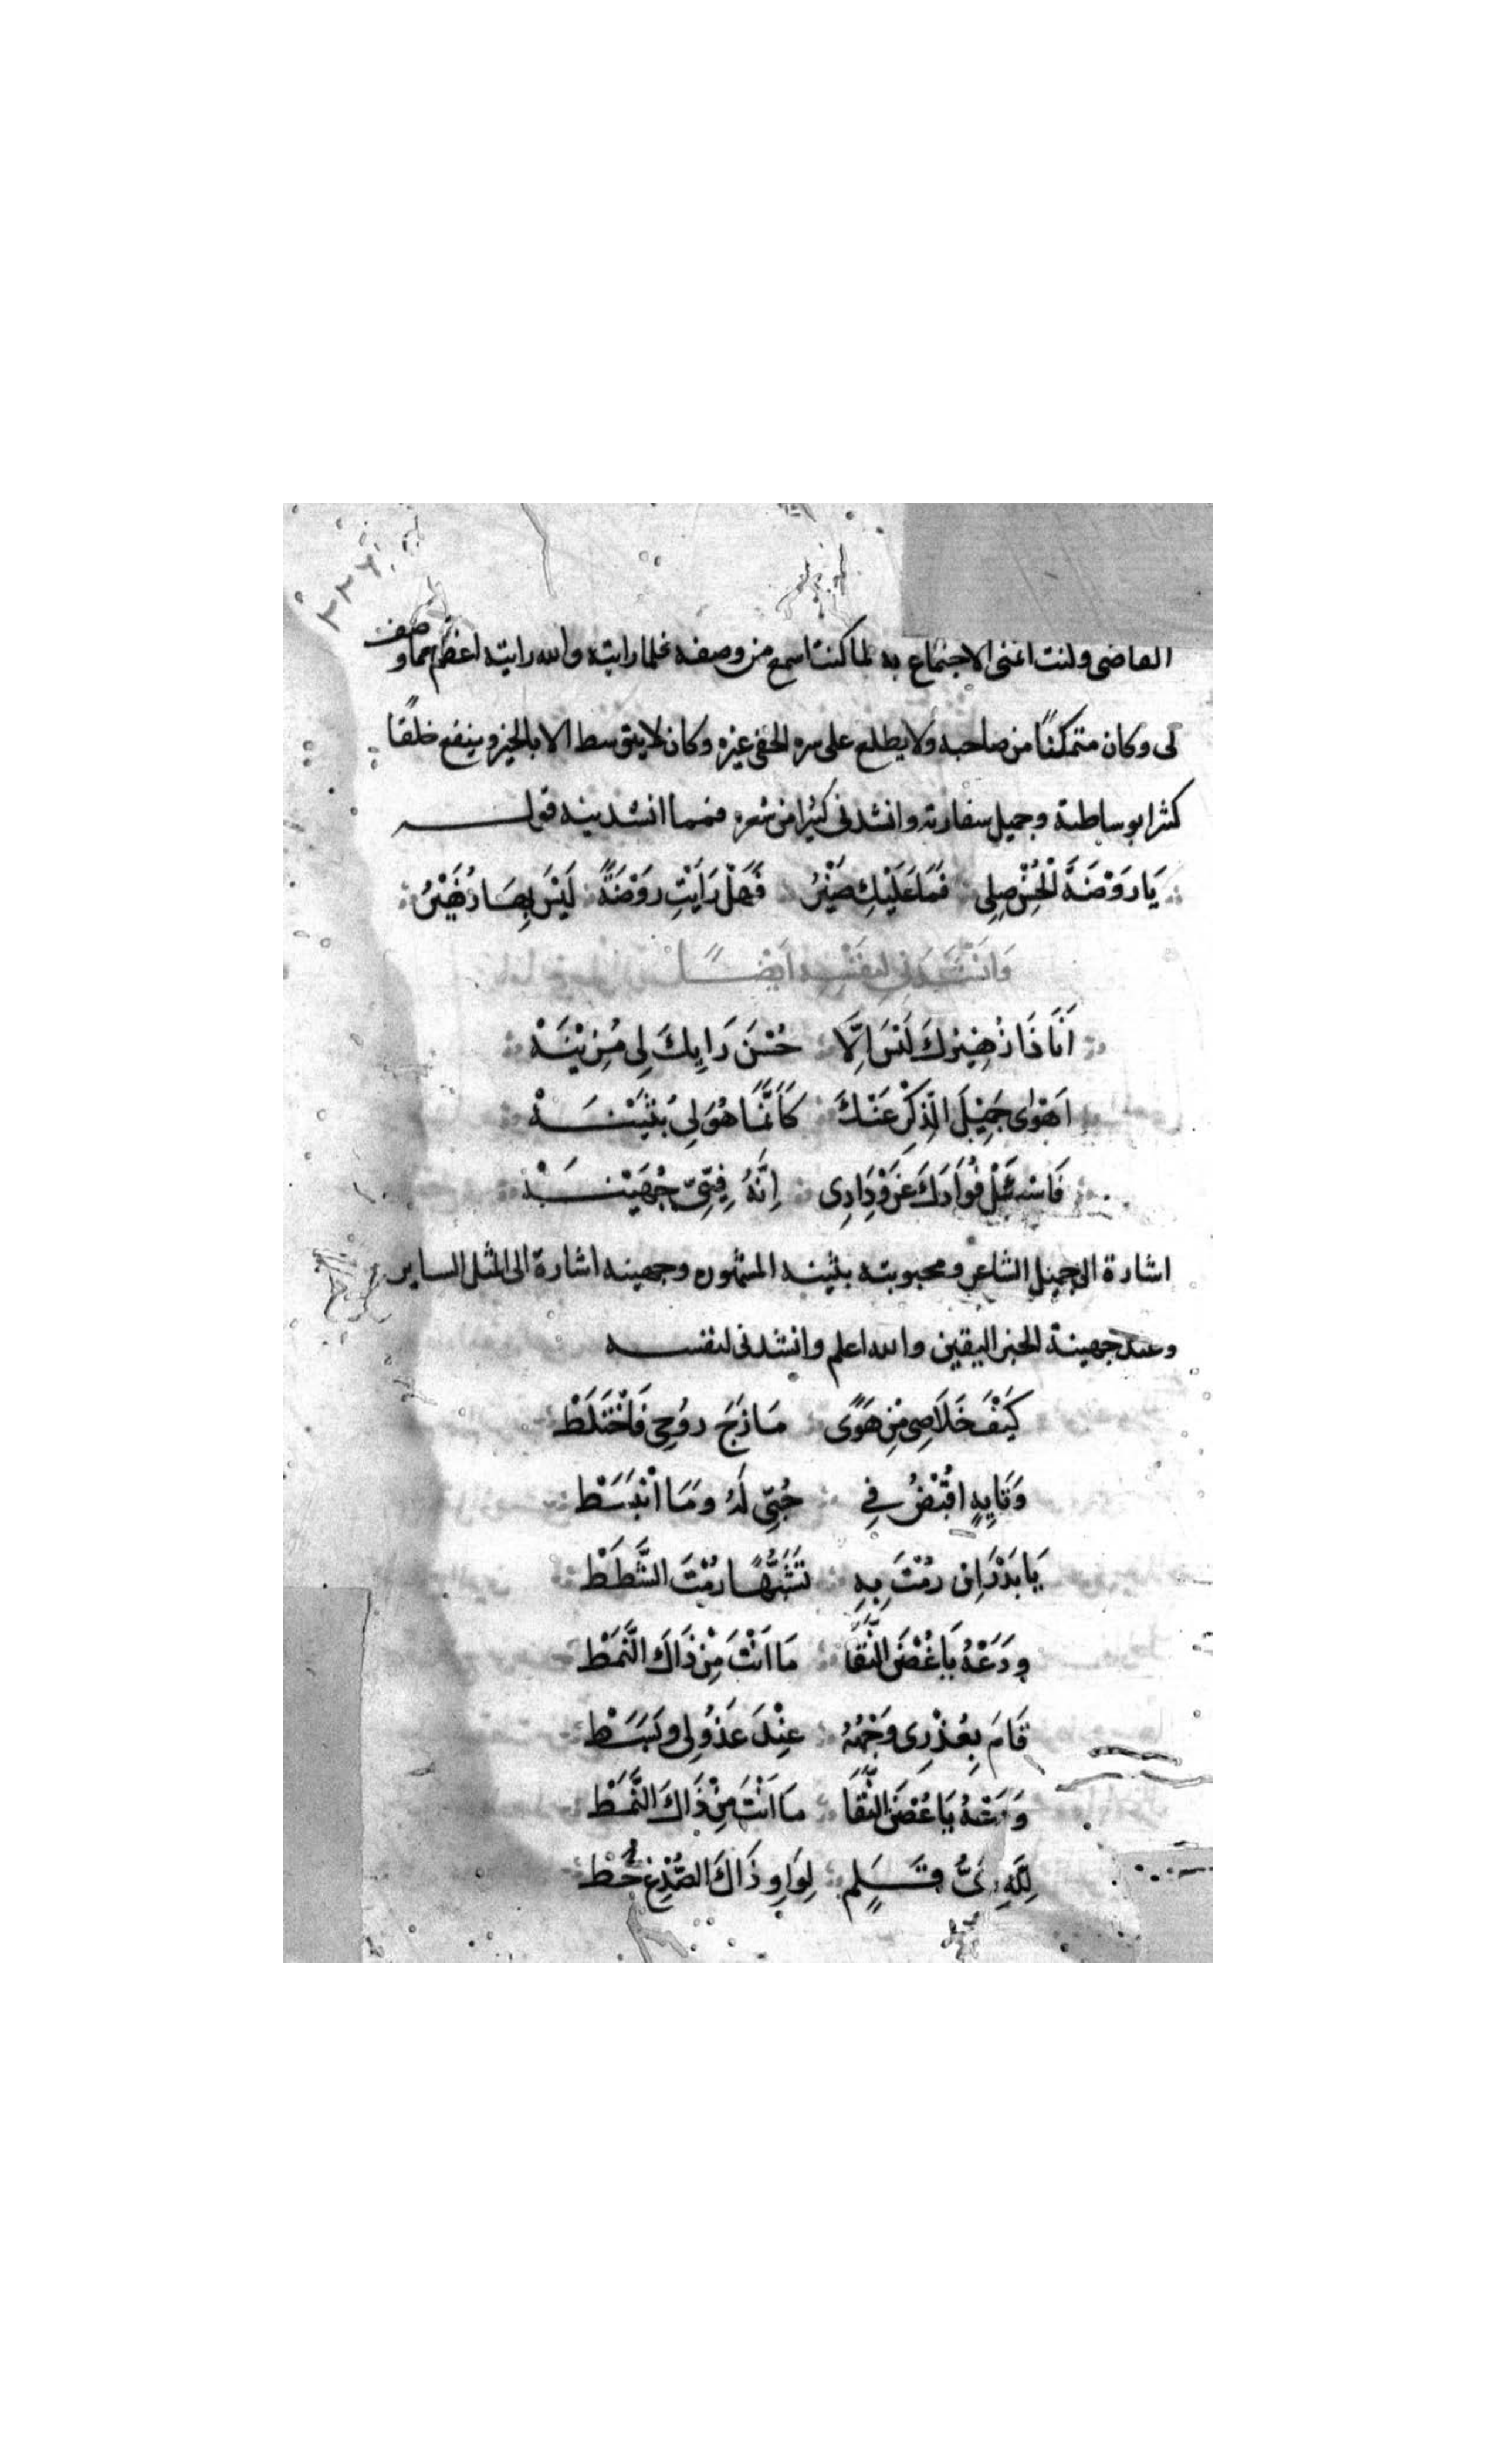 ٢٢٦
القاضى وكنت اتمنى الاجتماع به لما كنت اسمع من وصفه فلما رايته والله رايته اعظم مما وصف
لى وكان متمكنًا من صاحبه ولا يطلع على سره الخفى غيره وكان لا يتوسط الا بالخير وينفع خلقًا
كثيرا بوساطته وجميل سفارته وانشدنى كثيرا من شعره فمما انشدينه قولـه
يَا رَوْضَةَ الْحُسْنِ صِلِى فَمَا عَلَيْكِ ضَيْرُ فَهَلْ رَأَيْتِ رَوْضَةً لَيْسَ بِهَا زُهَيْرُ
وَانْشَدَنِى لِنَفْسِهِ اَيْضًا
اَنَا ذَا زُهَيْرُكَ لَيْسَ اِلَّا حُسْنَ رَايِكَ لِى مُزَيْنَهْ
اَهْوَى جَمِيْلَ الذِّكْرِ عَنْكَ كَاَنَّمَا هُوَ لِى بُثَيْنَهْ
فَاسْئَلْ فُوَادَكَ عَنْ وِدَادِى اِنَّهُ فِيْهِ جُهَيْنَهْ
اشارة الى جميل الشاعر ومحبوبته بثينه المشهوره وجهينه اشارة الى المثل الساير
وعند جهينة الخبر اليقين والله اعلم وانشدنى لنفسه
كَيْفَ خَلَاصِى مِنْ هَوًى مَازَجَ رُوْحِى فَاخْتَلَطْ
وَتَايِهٍ اَقْبُضُ فِي حُبِّى لَهُ وَمَا انْبَسَطْ
يَا بَدْرُ اِنْ رُمْتَ بِهِ تَشَبُّهًا رُمْتَ الشَّطَطْ
وَدَعْهُ يَا غُصْنَ النَّقَا مَا اَنْتَ مِنْ ذَاكَ النَّمَطْ
قَامَ بِعُذْرِى وَجْهُهُ عِنْدَ عَذُوْلِى وَبَسَطْ
وَدَعْهُ يَا غُصْنَ النَّقَا مَا اَنْتَ مِنْ ذَاكَ النَّمَطْ
لِلّهِ اَىُّ قَلَمٍ لِوَاوِ ذَاكَ الصُّدْغِ خَطْ